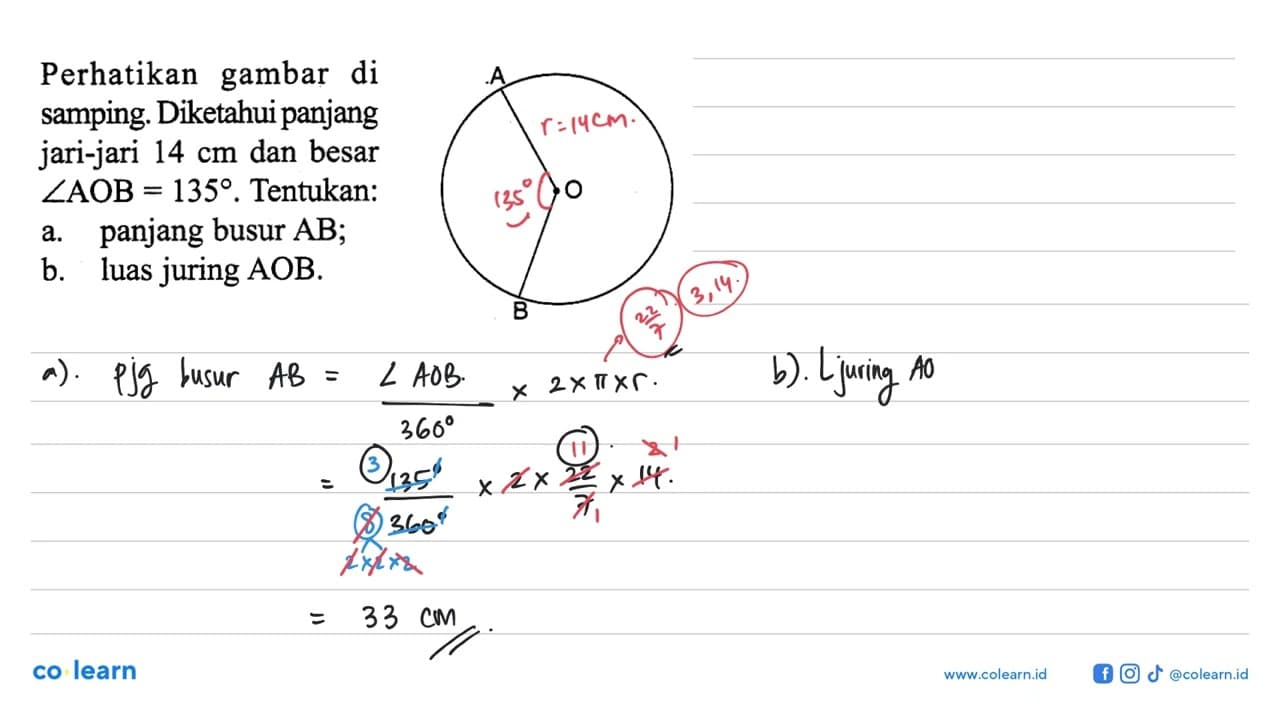 Perhatikan gambar di
samping. Diketahui panjang
jari-jari 14 cm dan besar
∠AOB = 135°. Tentukan:
a. panjang busur AB;
b. luas juring AOB.
A
r = 14 cm.
135°
O
B
22/7
3,14.
a). pjg busur AB = ∠ AOB. / 360° × 2 × π × r.
= 135° / 360° × 2 × 22/7 × 14.
3
8
2 × 2 × 2
11
2 1
1
= 33 cm
b). L juring AO
co learn
www.colearn.id
@colearn.id